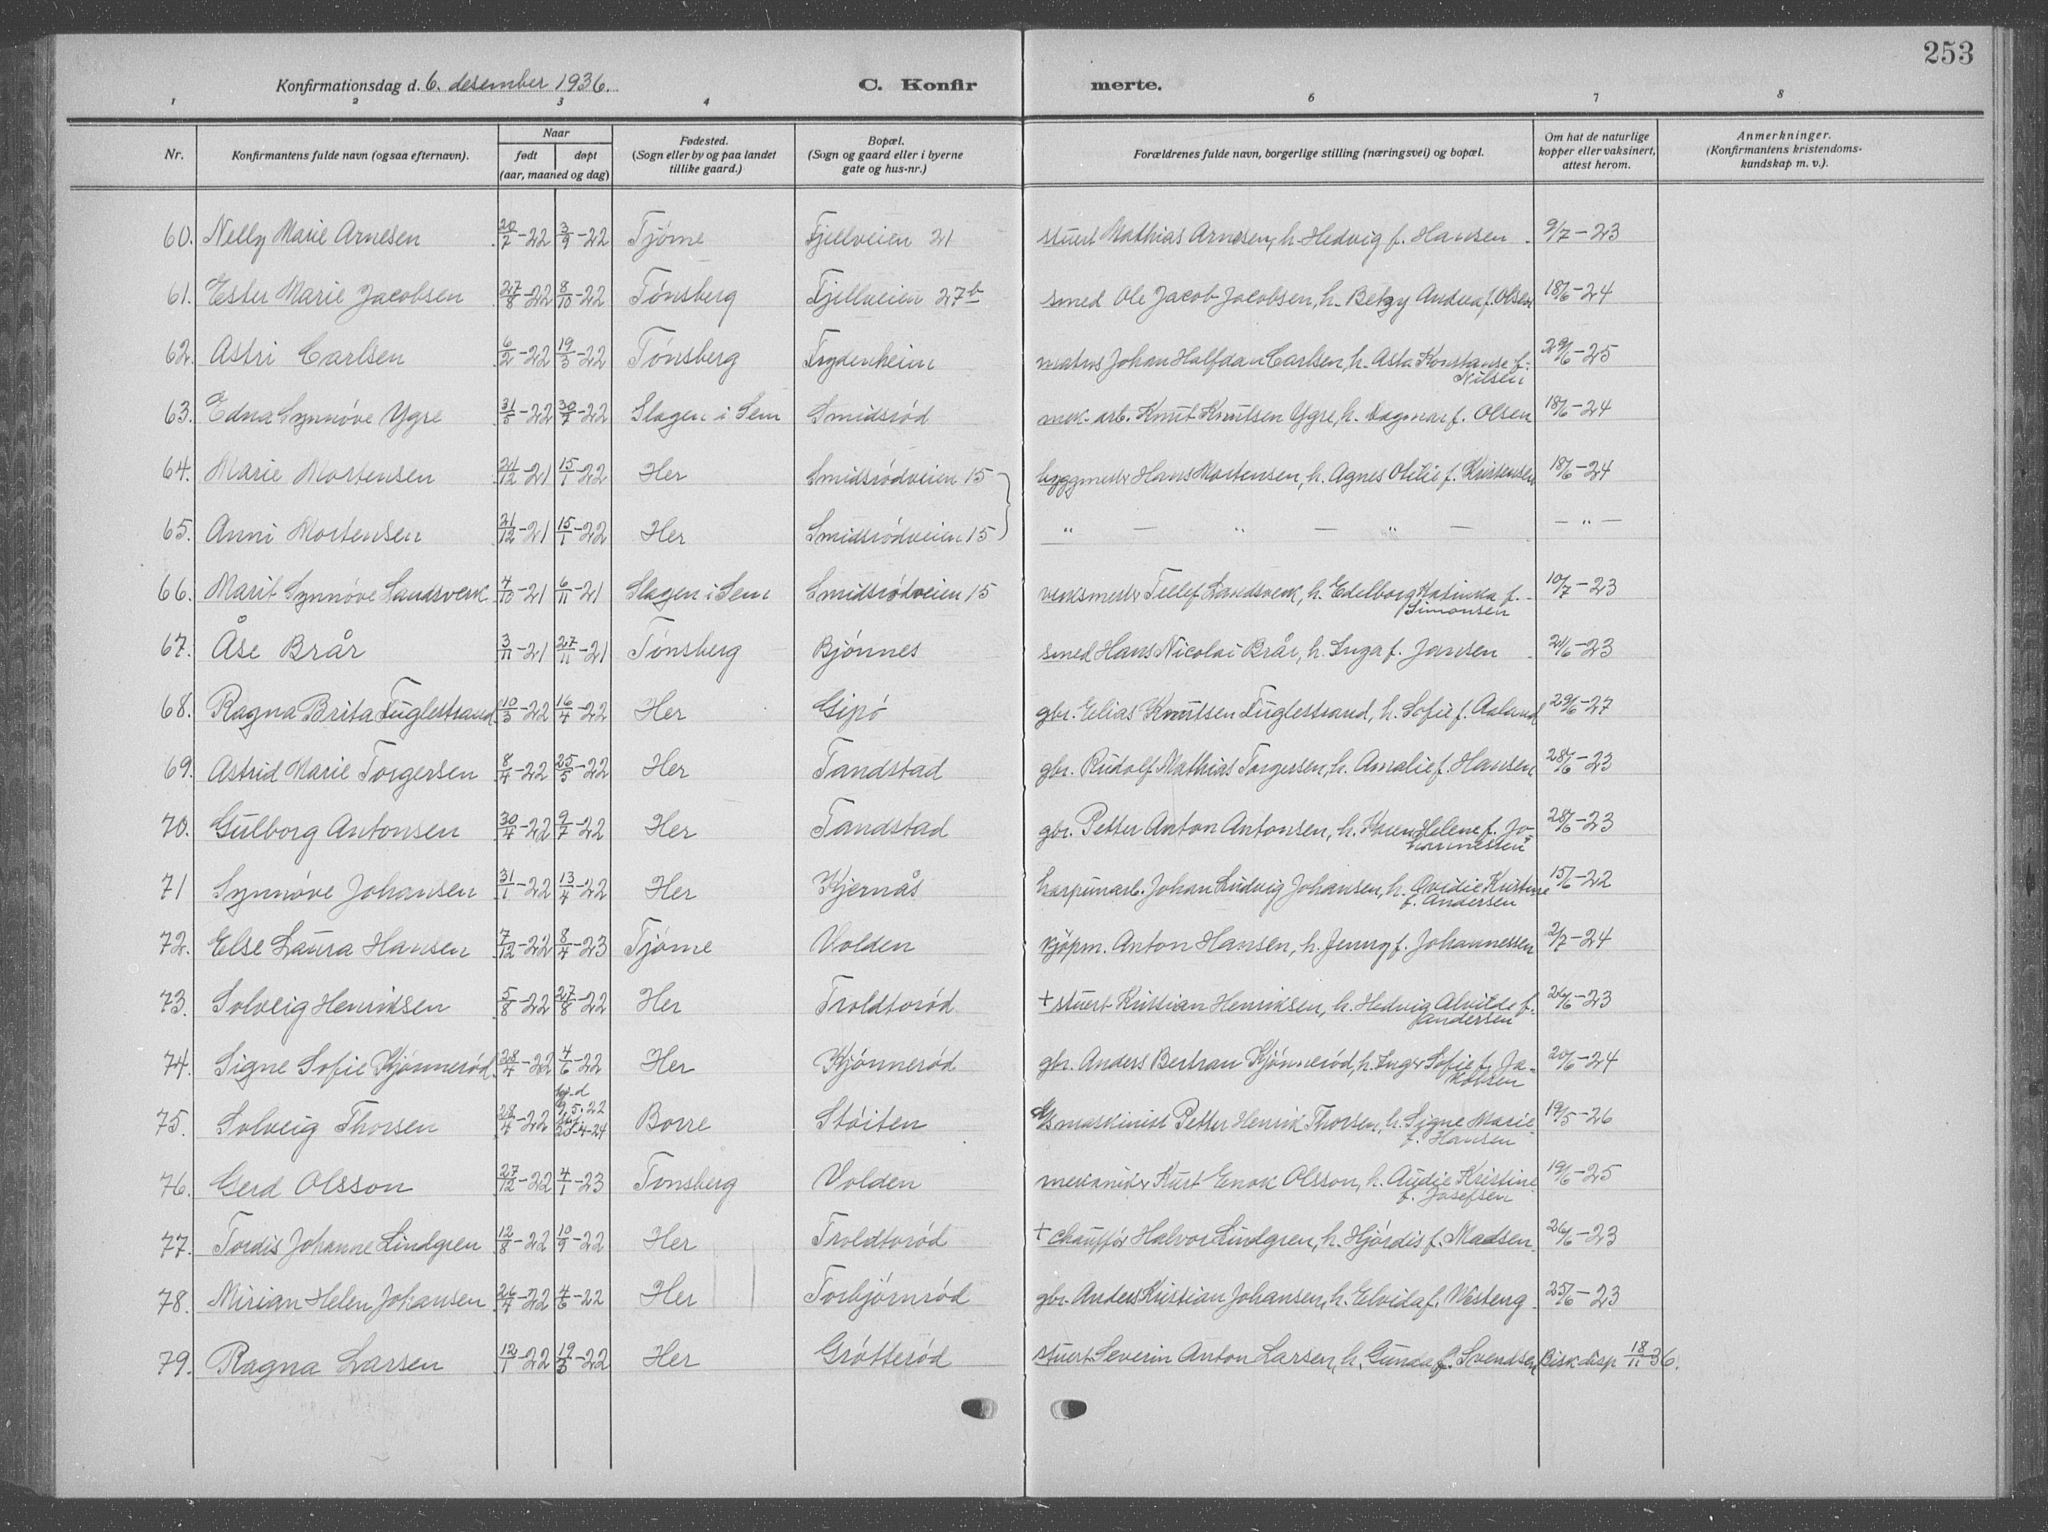 253
Konfirmationsdag d. 6. desember 1936. C. Konfir merte.
1 2 3 4 6 7 8
Nr. Konfirmantens fulde navn (ogsaa efternavn). Naar født døpt (aar, maaned og dag) Fødested. (Sogn eller by og paa landet tillike gaard.) Bopæl. (Sogn og gaard eller i byerne gate og hus-nr.) Forældrenes fulde navn, borgerlige stilling (næringsvei) og bopæl. Om hat de naturlige kopper eller vaksinert, attest herom. Anmerkninger. (Konfirmantens kristendoms-kundskap m. v.).
60. Nelly Marie Arnesen 20/7-22 3/9-22 Tjøme Fjellveien 21 stuert Mathias Arnesen, h. Hedvig f. Hansen 9/7-23
61. Ester Marie Jacobsen 27/8-22 8/10-22 Tønsberg Fjellveien 27b smed Ole Jacob Jacobsen, h. Betzy Andrea f. Olsen 18/6-24
62. Astri Carlsen 6/2-22 19/3-22 Tønsberg Frydenheim matros Johan Halfdan Carlsen, h. Asta Konstanse f. Nilsen 29/6-25
63. Edna Synnøve Ygre 31/5-22 30/7-22 Slagen i Sem Smidsrød mek. arb. Knut Knutsen Ygre, h. Dagmar f. Olsen 18/6-24
64. Marie Mortensen 21/12-21 15/1-22 Her Smidsrødveien 15 byggmestr Hans Mortensen, h. Agnes Otilie f. Kristensen 18/6-24
65. Anni Mortensen 21/12-21 15/1-22 Her Smidsrødveien 15 " — " — " — — " —
66. Marit Synnøve Sandsverk 4/10-21 6/11-21 Slagen i Sem Smidsrødveien 15 verksmestr Tellef Sandsverk, h. Edelborg Katinka f. Simonsen 10/7-23
67. Åse Brår 3/11-21 27/11-21 Tønsberg Bjønnes smed Hans Nicolai Brår, h. Inga f. Jansen 21/6-23
68. Ragna Brita Fuglestrand 10/3-22 16/4-22 Her Gipø gbr. Elias Knutsen Fuglestrand, h. Sofie f. Aaland 29/6-27
69. Astrid Marie Torgersen 8/4-22 25/5-22 Her Tandstad gbr. Rudolf Mathias Torgersen, h. Amalie f. Hansen 28/6-23
70. Gulborg Antonsen 30/4-22 9/7-22 Her Tandstad gbr. Petter Anton Antonsen, h. Karen Helene f. Johannessen 28/6-23
71 Synnøve Johansen 31/1-22 13/4-22 Her Kjernås harpunarb. Johan Ludvig Johansen, h. Ovidie Kristine f. Andersen 15/6-22
72. Else Laura Hansen 7/12-22 8/4-23 Tjøme Volden kjøpm. Anton Hansen, h. Jenny f. Johannessen 2/7-24
73. Solveig Henriksen 5/8-22 27/8-22 Her Troldtorød + stuert Kristian Henriksen, h. Hedvig Alvilde f. Andersen 26/6-23
74. Signe Sofie Kjønnerød 28/4-22 4/6-22 Her Kjønnerød gbr. Anders Bertran Kjønnerød, h. Inger Sofie f. Jakobsen 20/6-24
75. Solveig Thorsen 28/4-22 hj.d 9.5.22 20-4-24 Borre Støiten maskinist Petter Henrik Thorsen, h. Signe Marie f. Hansen 19/5-26
76. Gerd Olsson 27/12-22 4/1-23 Tønsberg Volden mekaniker Kurt Enok Olsson, h. Audie Kristine f. Josefsen 19/6-25
77. Tordis Johanne Lindgren 12/8-22 10/9-22 Her Troldtorød + chauffør Halvor Lindgren, h. Hjørdis f. Madsen 26/6-23
78. Mirian Helen Johansen 26/4-22 4/6-22 Her Torbjørnrød gbr. Anders Kristian Johansen, h. Elvida f. Westeng 25/6-23
79. Ragna Larsen 12/1-22 19/3-22 Her Grøtterød stuert Severin Anton Larsen, h. Gunda f. Svendsen Bisk. disp 18/11-36.